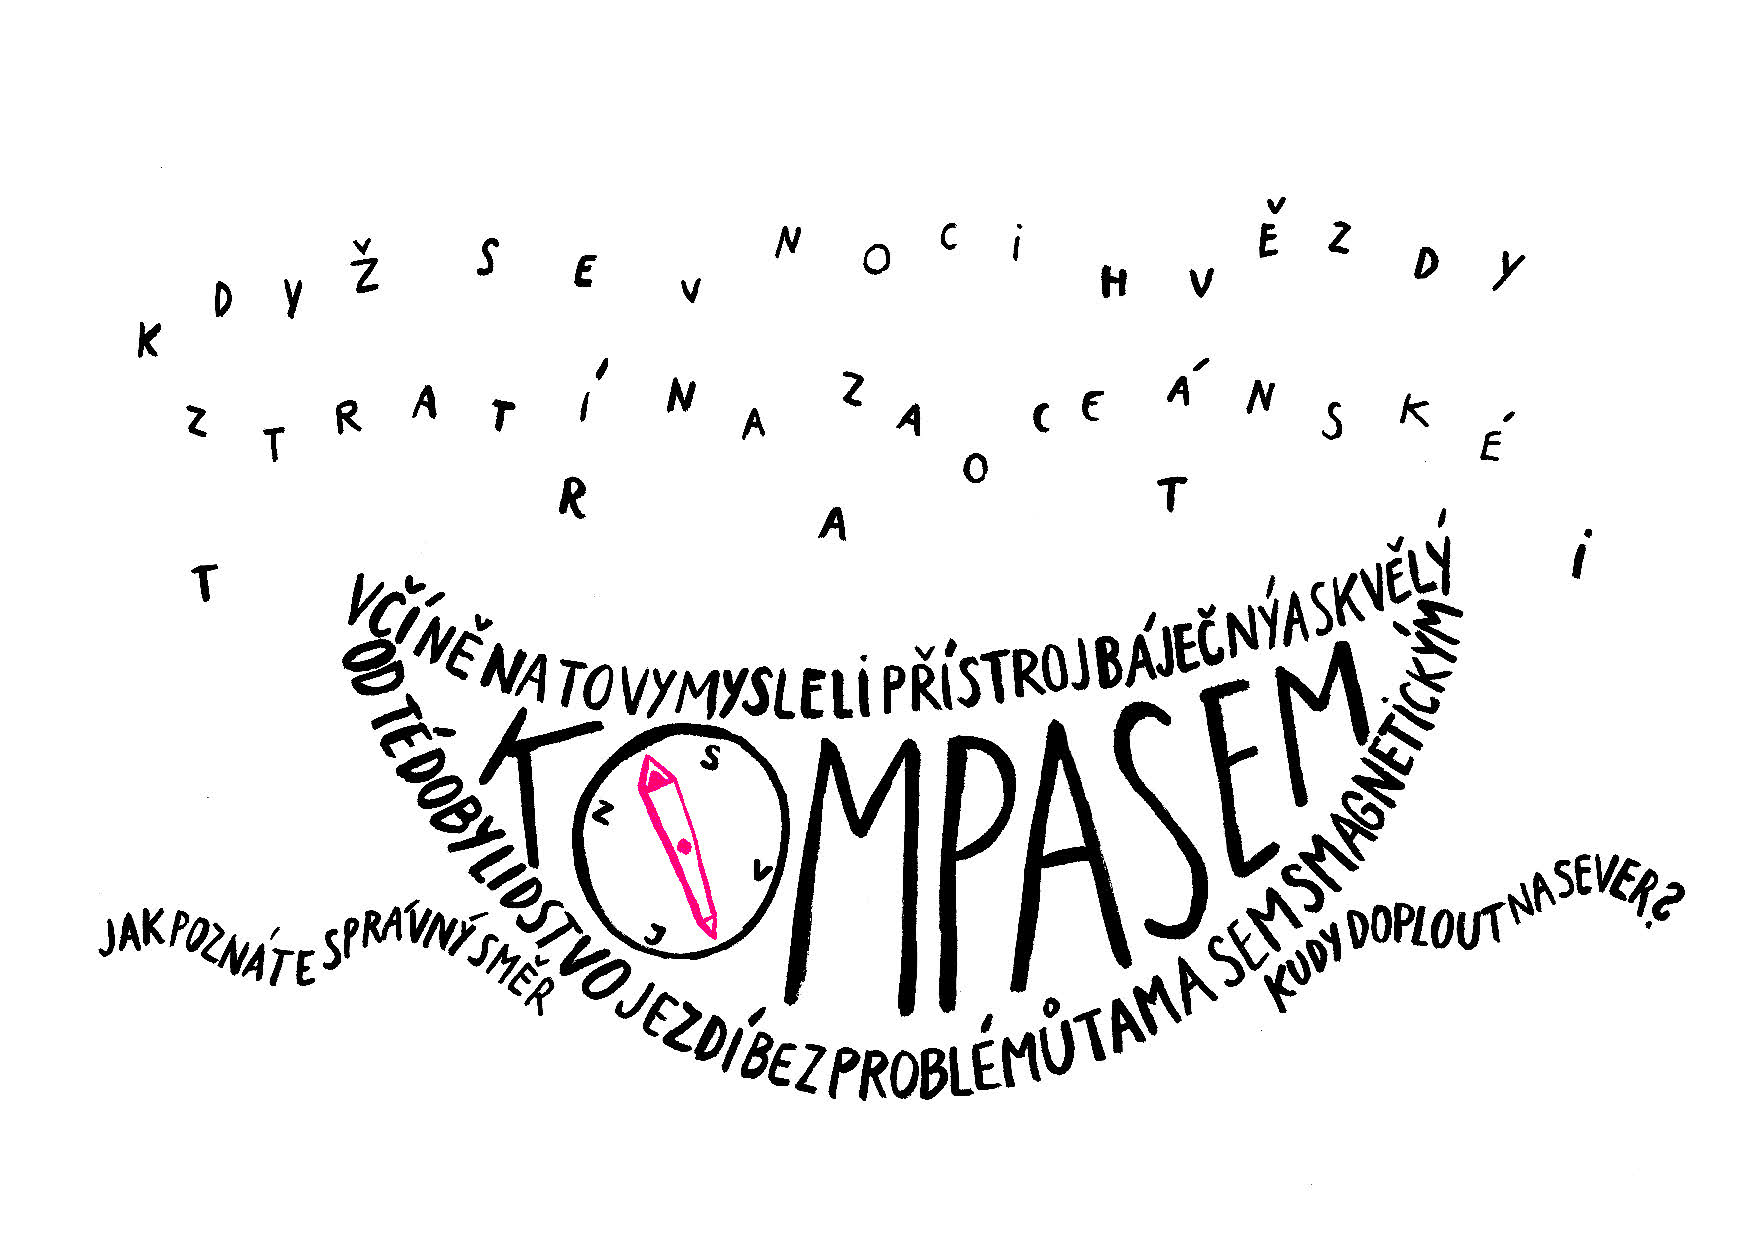 KDYŽ SE V NOCI HVĚZDY
ZTRATÍ NA ZAOCEÁNSKÉ
TRATI
JAK POZNÁTE SPRÁVNÝ SMĚR
KUDY DOPLOUT NA SEVER?
V ČÍNĚ NA TO VYMYSLELI PŘÍSTROJ BÁJEČNÝ A SKVĚLÝ
OD TÉ DOBY LIDSTVO JEZDÍ BEZ PROBLÉMŮ TAM A SEM S MAGNETICKÝM
KOMPASEM
S
Z
V
J